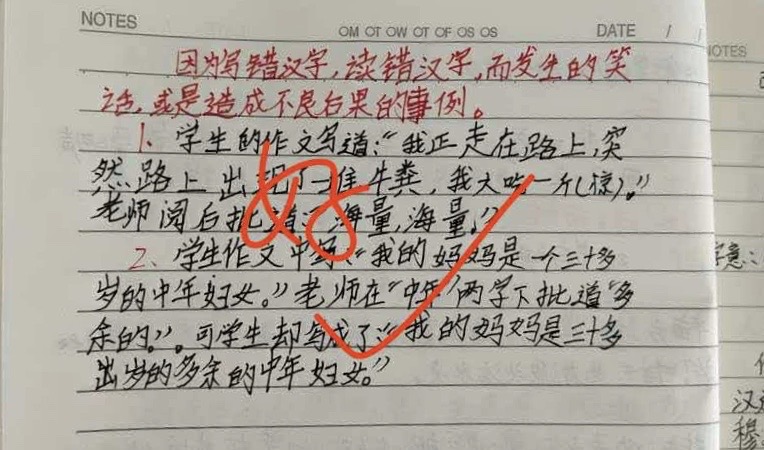 NOTES
OM OT OW OT OF OS OS
DATE / /
因为写错汉字,读错汉字,而发生的笑
话,或是造成不良后果的事例。
1、学生的作文写道:“我正走在路上,突
然路上出现了一堆牛粪,我大吃一斤(惊)。”
老师阅后批道:“海量,海量。”
2、学生作文中写“我的妈妈是一个三十多
岁的中年妇女。”老师在“中年”两字下批道“多
余的”。可学生却写成了“我的妈妈是三十多
出岁的多余的中年妇女。”
好
NOTES
字意:
汉
穆